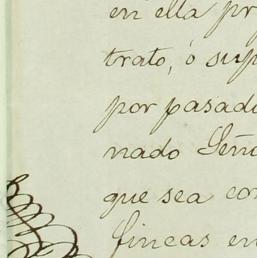 en ella pr
trato, ó sup
por pasad
nado Seño
que sea con
fincas en